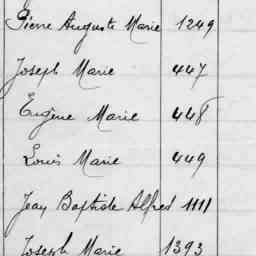 Pierre Auguste Marie 1249
Joseph Marie 447
Eugène Marie 448
Louis Marie 449
Jean Baptiste Alfred 1111
Joseph Marie 1393